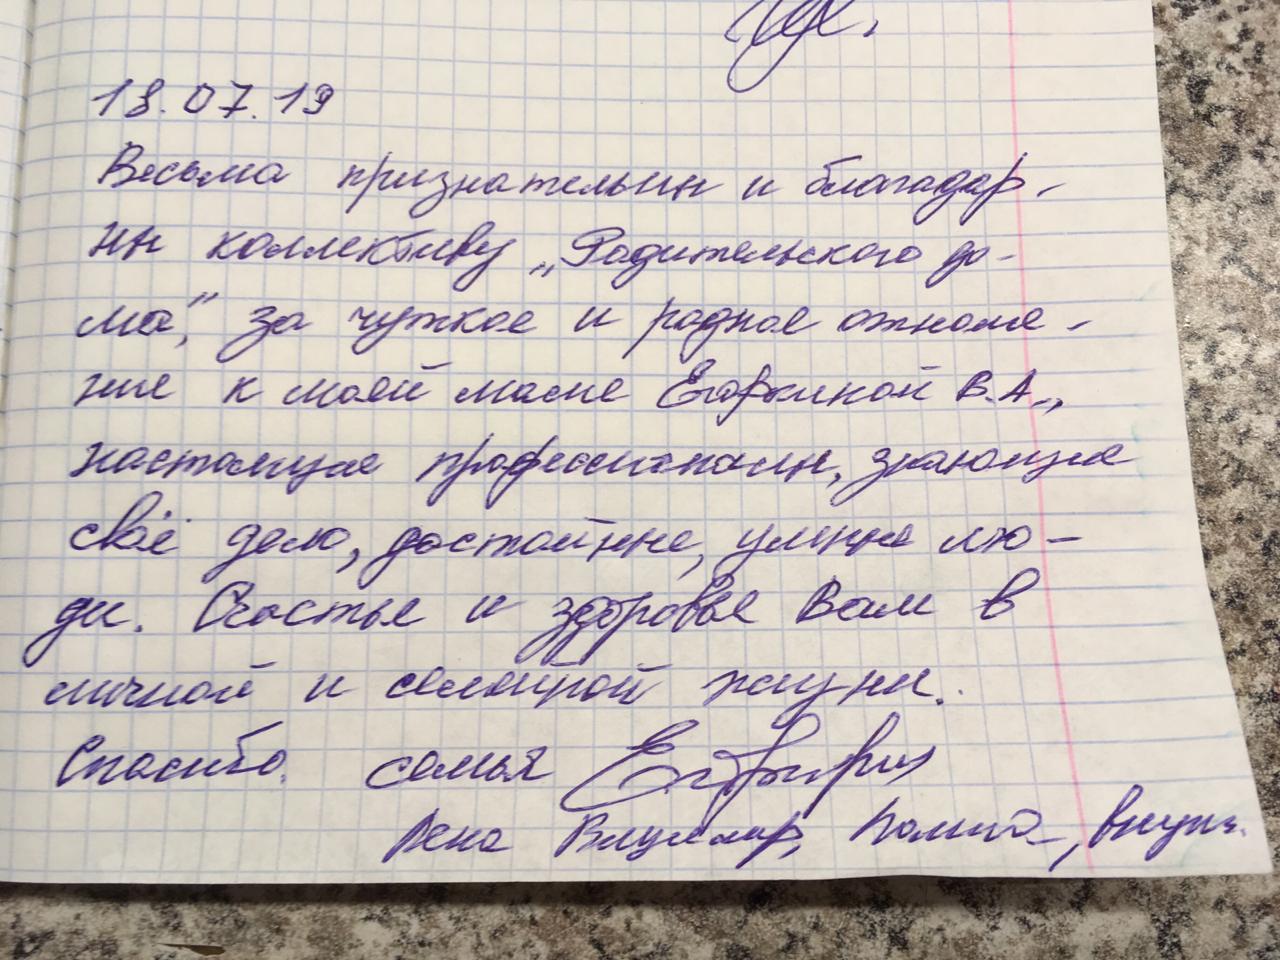 18.07.19
Весьма признательны и благадар-
ны коллективу „Родительского до-
ма", за чуткое и родное отноше-
ние к моей маме В.А.,
настоящие профессионалы, знающие
своё дело, достойные, умные лю-
ди. Счастье и здоровье Вам в
личной и семейной жизни.
Спасибо. семья
Лена Владимир, Полина, внуки.